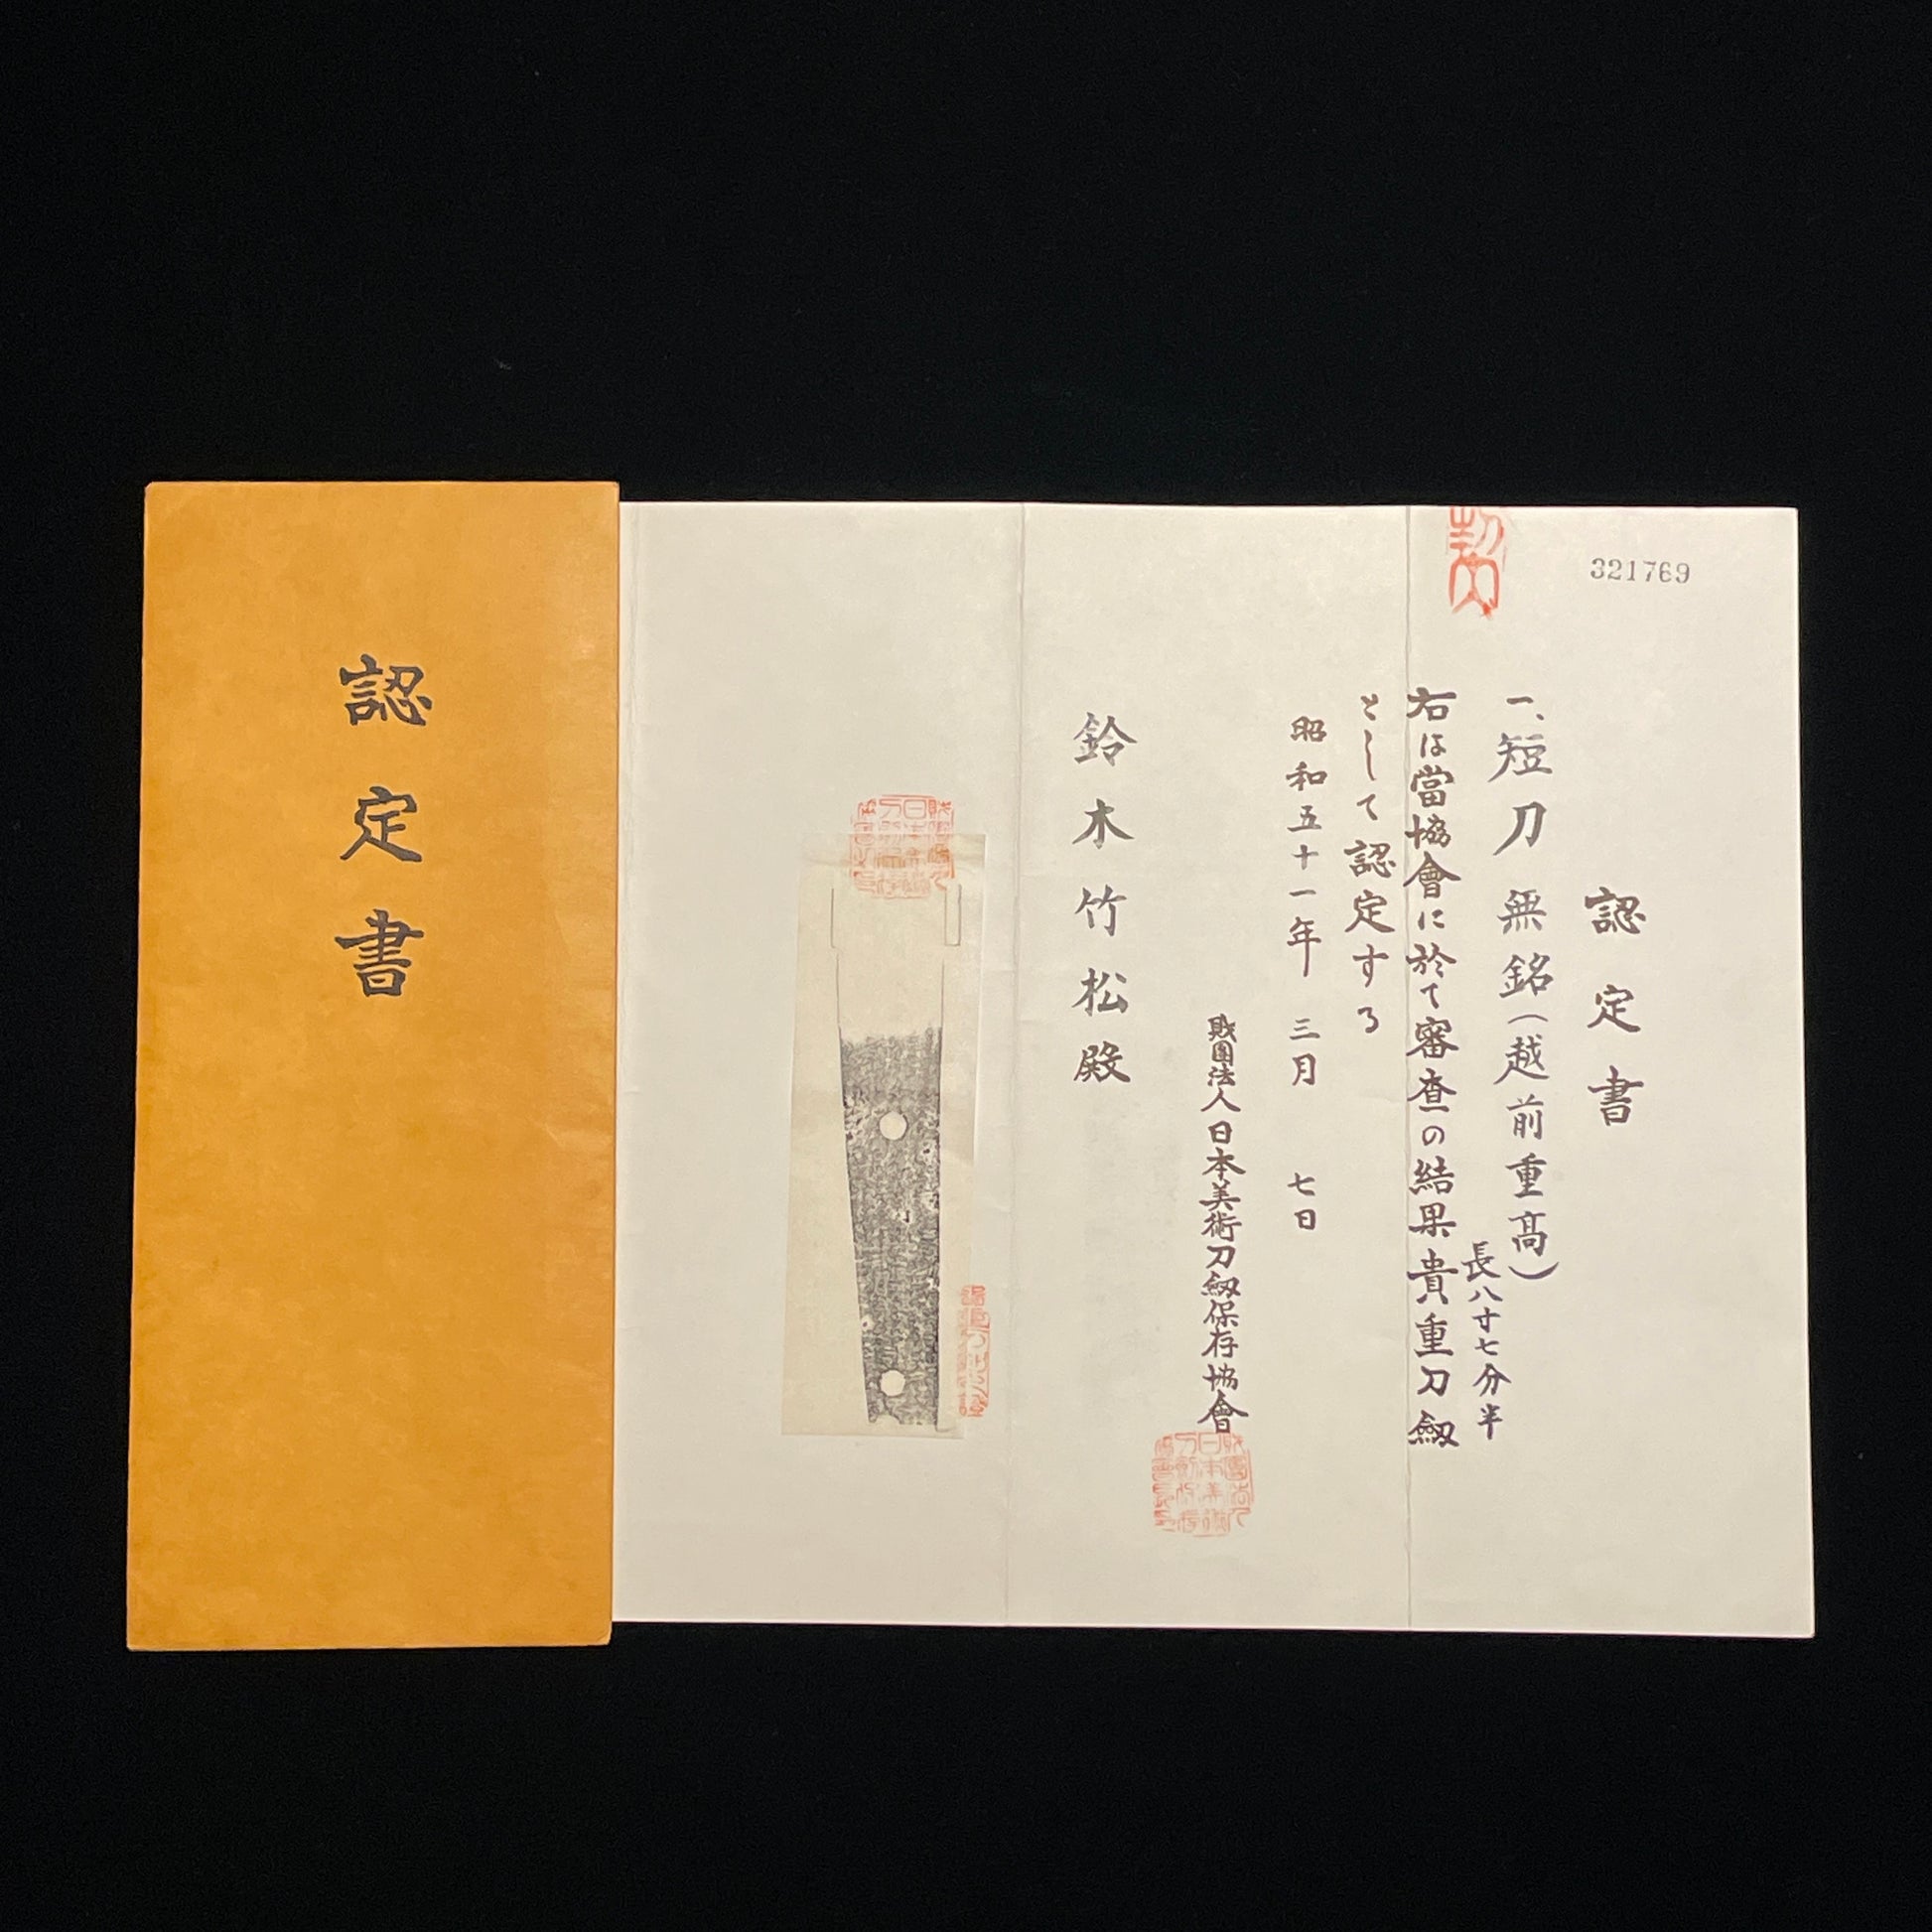 認定書
321769
認定書
一、短刀 無銘(越前重高)
長八寸七分半
右は當協會に於て審査の結果貴重刀劔
として認定する
昭和五十一年 三月 七日
財團法人日本美術刀劔保存協會
鈴木竹松殿